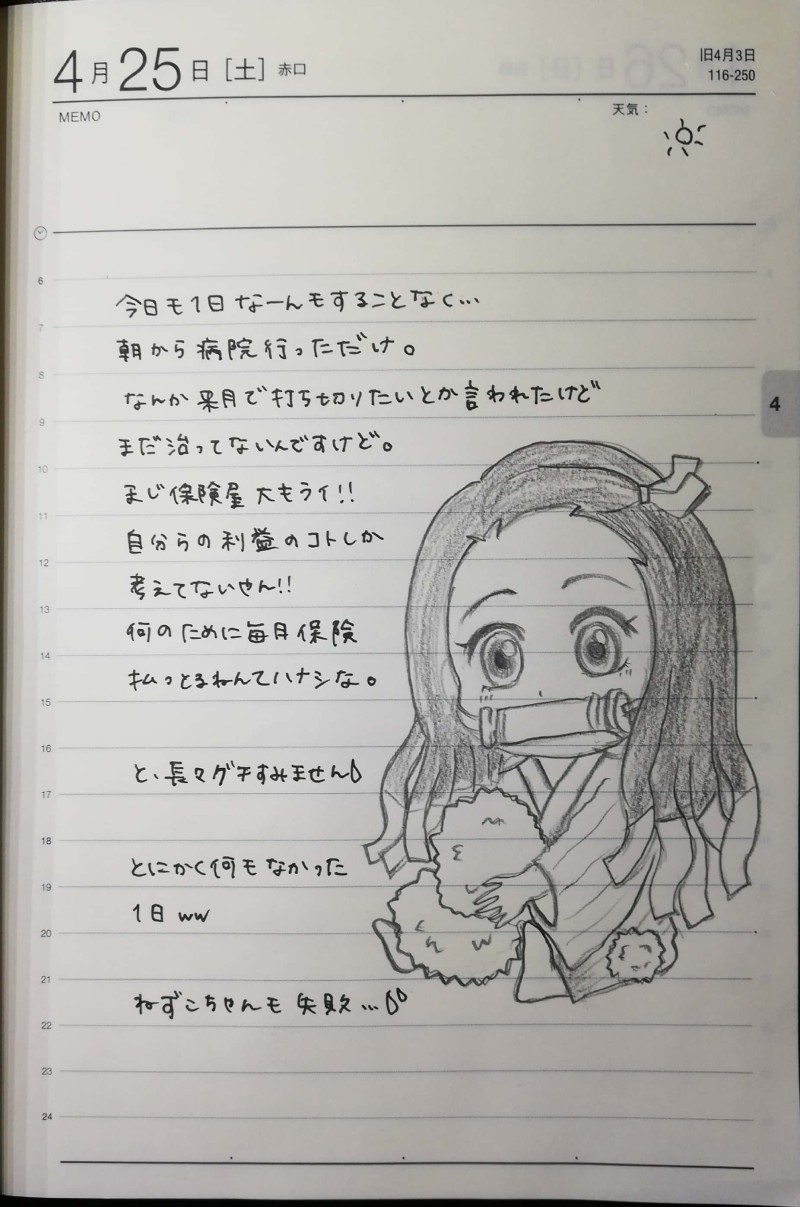 4月25日[土]赤口
旧4月3日
116-250
MEMO
天気：
6
今日も1日なーんもすることなく…
7
朝から病院行っただけ。
8
なんか来月で打ち切りたいとか言われたけど
4
9
まだ治ってないんですけど。
10
まじ保険屋大キライ!!
11
自分らの利益のコトしか
12
考えてないやん!!
13
何のために毎月保険
14
払っとるねんてハナシな。
15
16
と、長々グチすみません
17
18
とにかく何もなかった
19
1日ww
20
21
ねずこちゃんも失敗…
22
23
24